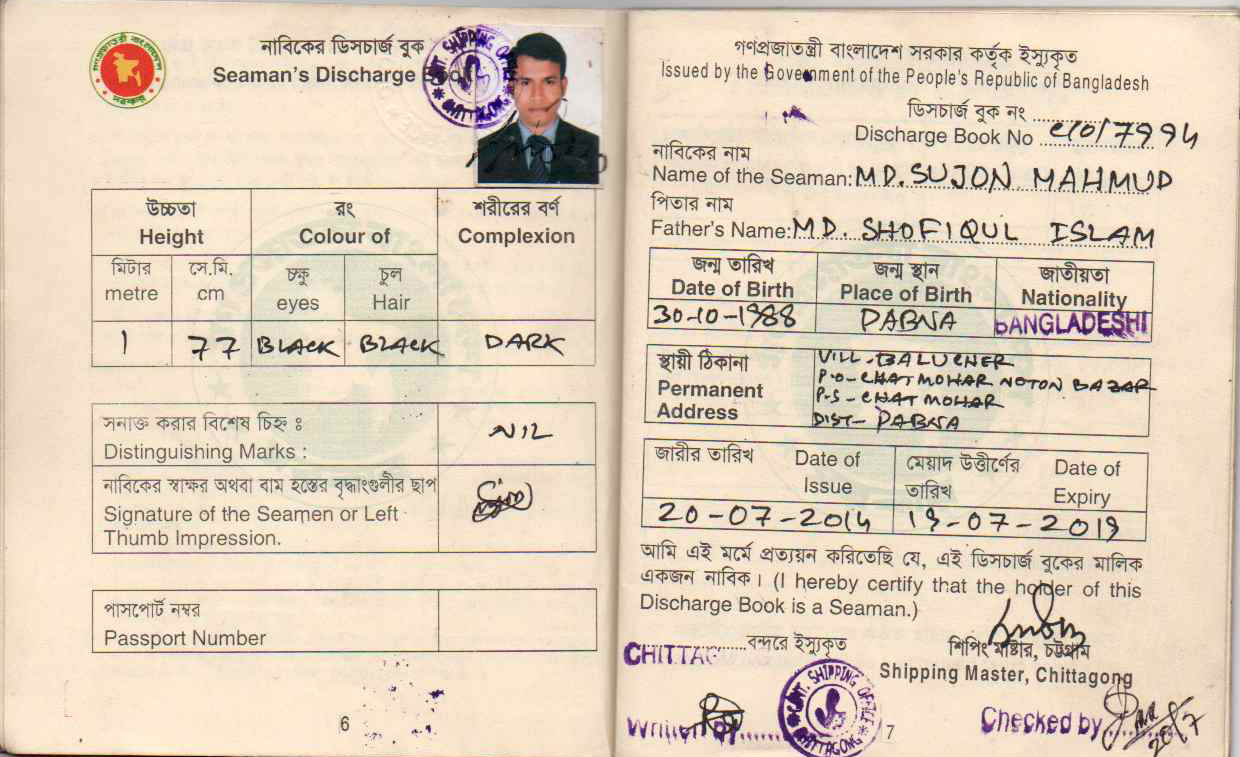 গণপ্রজাতন্ত্রী বাংলাদেশ
সরকার
নাবিকের ডিসচার্জ বুক
Seaman's Discharge Book
GOVT. SHIPPING OFFICE
CHATTAGONG
উচ্চতা
Height
রং
Colour of
শরীরের বর্ণ
Complexion
মিটার
metre
সে.মি.
cm
চক্ষু
eyes
চুল
Hair
1 77 BLACK BLACK DARK
সনাক্ত করার বিশেষ চিহ্ন ঃ
Distinguishing Marks :
NIL
নাবিকের স্বাক্ষর অথবা বাম হস্তের বৃদ্ধাংগুলীর ছাপ
Signature of the Seamen or Left
Thumb Impression.
পাসপোর্ট নম্বর
Passport Number
6
গণপ্রজাতন্ত্রী বাংলাদেশ সরকার কর্তৃক ইস্যুকৃত
Issued by the Government of the People's Republic of Bangladesh
ডিসচার্জ বুক নং
Discharge Book No C/O/7994
নাবিকের নাম
Name of the Seaman: MD. SUJON MAHMUD
পিতার নাম
Father's Name: MD. SHOFIQUL ISLAM
জন্ম তারিখ
Date of Birth
জন্ম স্থান
Place of Birth
জাতীয়তা
Nationality
30-10-1988 PABNA BANGLADESHI
স্থায়ী ঠিকানা
Permanent
Address
VILL-BALUCHER
P.O-CHATMOHAR NOTON BAZAR
P.S-CHATMOHAR
DIST-PABNA
জারীর তারিখ Date of
Issue
মেয়াদ উত্তীর্ণের Date of
তারিখ Expiry
20-07-2014 19-07-2019
আমি এই মর্মে প্রত্যয়ন করিতেছি যে, এই ডিসচার্জ বুকের মালিক
একজন নাবিক। (I hereby certify that the holder of this
Discharge Book is a Seaman.)
বন্দরে ইস্যুকৃত
CHITTAG
শিপিং মাষ্টার, চট্টগ্রাম
Shipping Master, Chittagong
GOVT. SHIPPING OFFICE
CHATTAGONG
Written By
7
Checked by
20/7